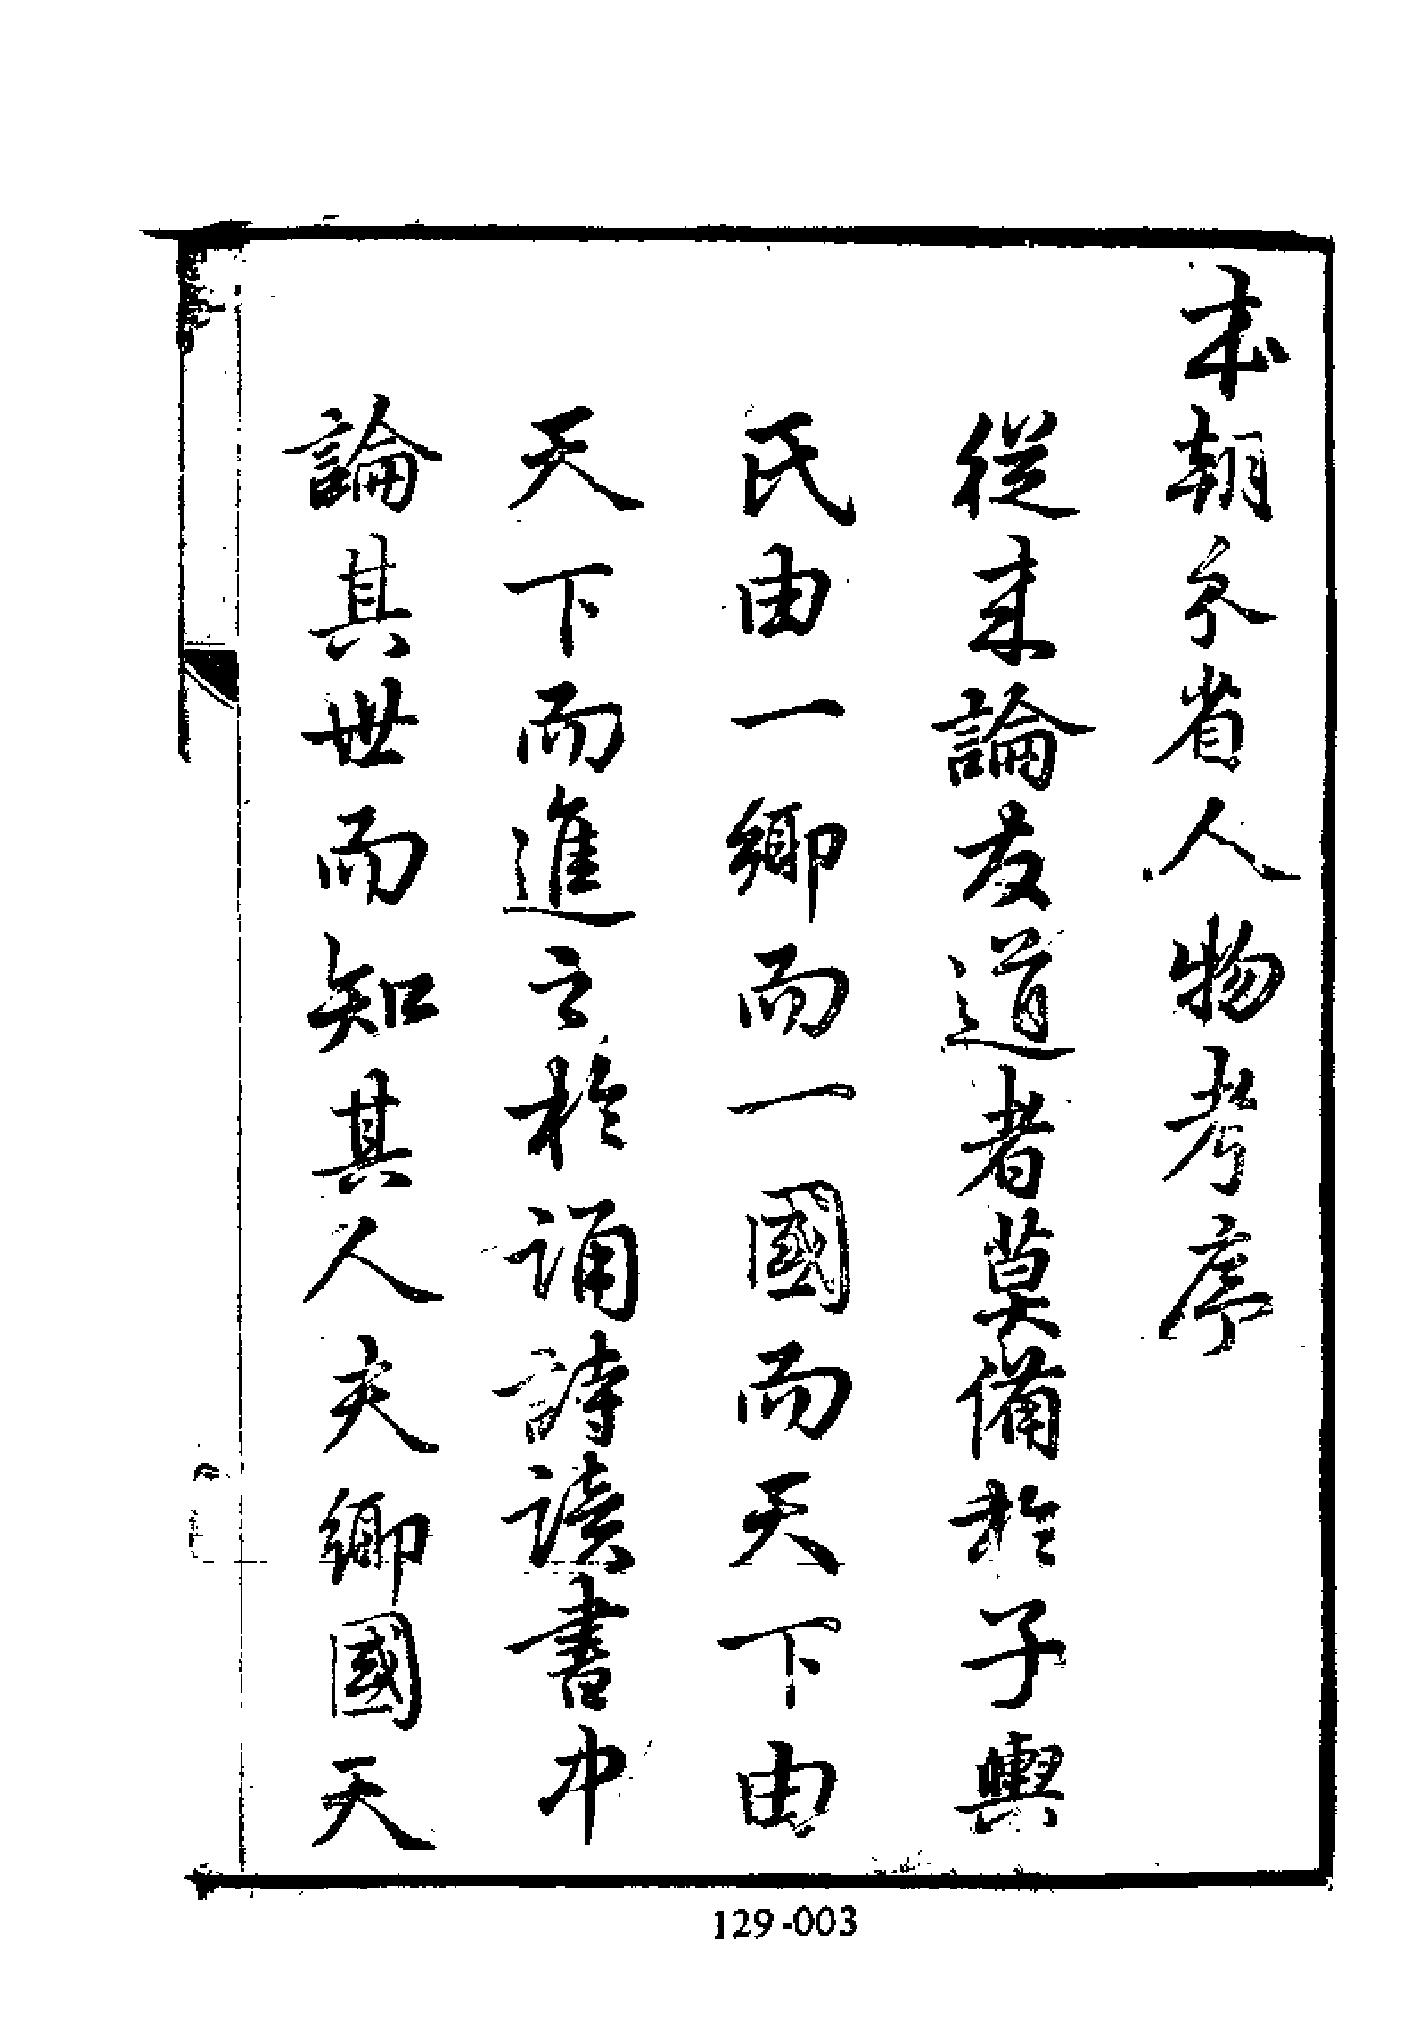 本朝分省人物考序
從来論友道者莫備於子輿
氏由一鄉而一國而天下由
天下而進之於誦詩讀書中
論其世而知其人夫鄉國天
129-003